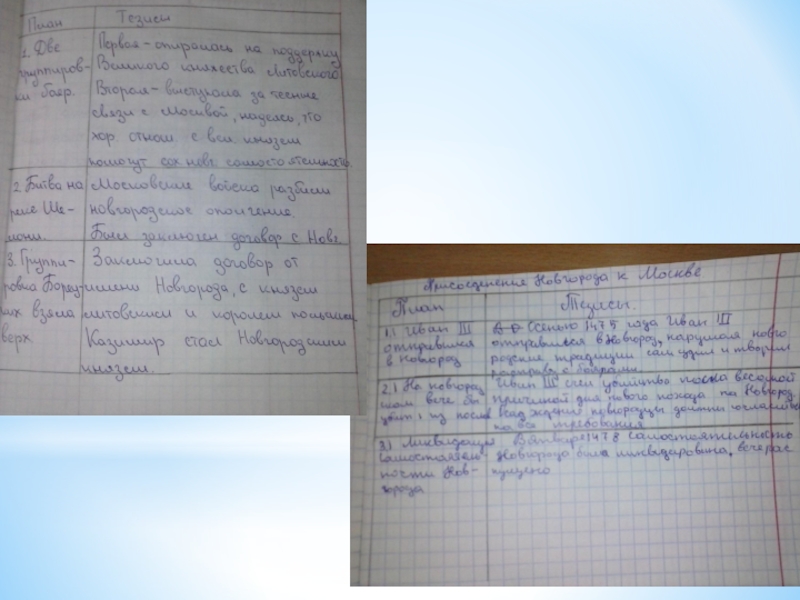 План Тезисы
1. Две Первая - опиралась на поддержку
группиров- Великого княжества Литовского
ки бояр. Вторая - выступала за тесные
связи с Москвой, надеясь, что
хор. отнош. с вел. князем
помогут сох новг. самостоятельность.
2. Битва на Московские войска разбили
реке Ше- новгородское ополчение.
лони. Был заключен договор с Новг.
3. Группи- Заключила договор от
ровка Борец- имени Новгорода, с князем
ких взяла литовским и королем польским
верх. Казимир стал Новгородским
князем.
Присоединение Новгорода к Москве
План Тезисы.
1.) Иван III Осенью 1475 года Иван III
отправился отправился в Новгород, нарушая новго
в Новгород родские традиции сам судил и творил
расправу с боярами
2.) На новгород Иван III счел убийство посла весомой
ском вече был причиной для нового похода на Новгород
убит 1 из послов новгородцы должны
на все требования
3.) Ликвидация В январе 1478 самостоятельность
самостоятель- Новгорода была ликвидирована, вече рас
ности Нов- пущено
города